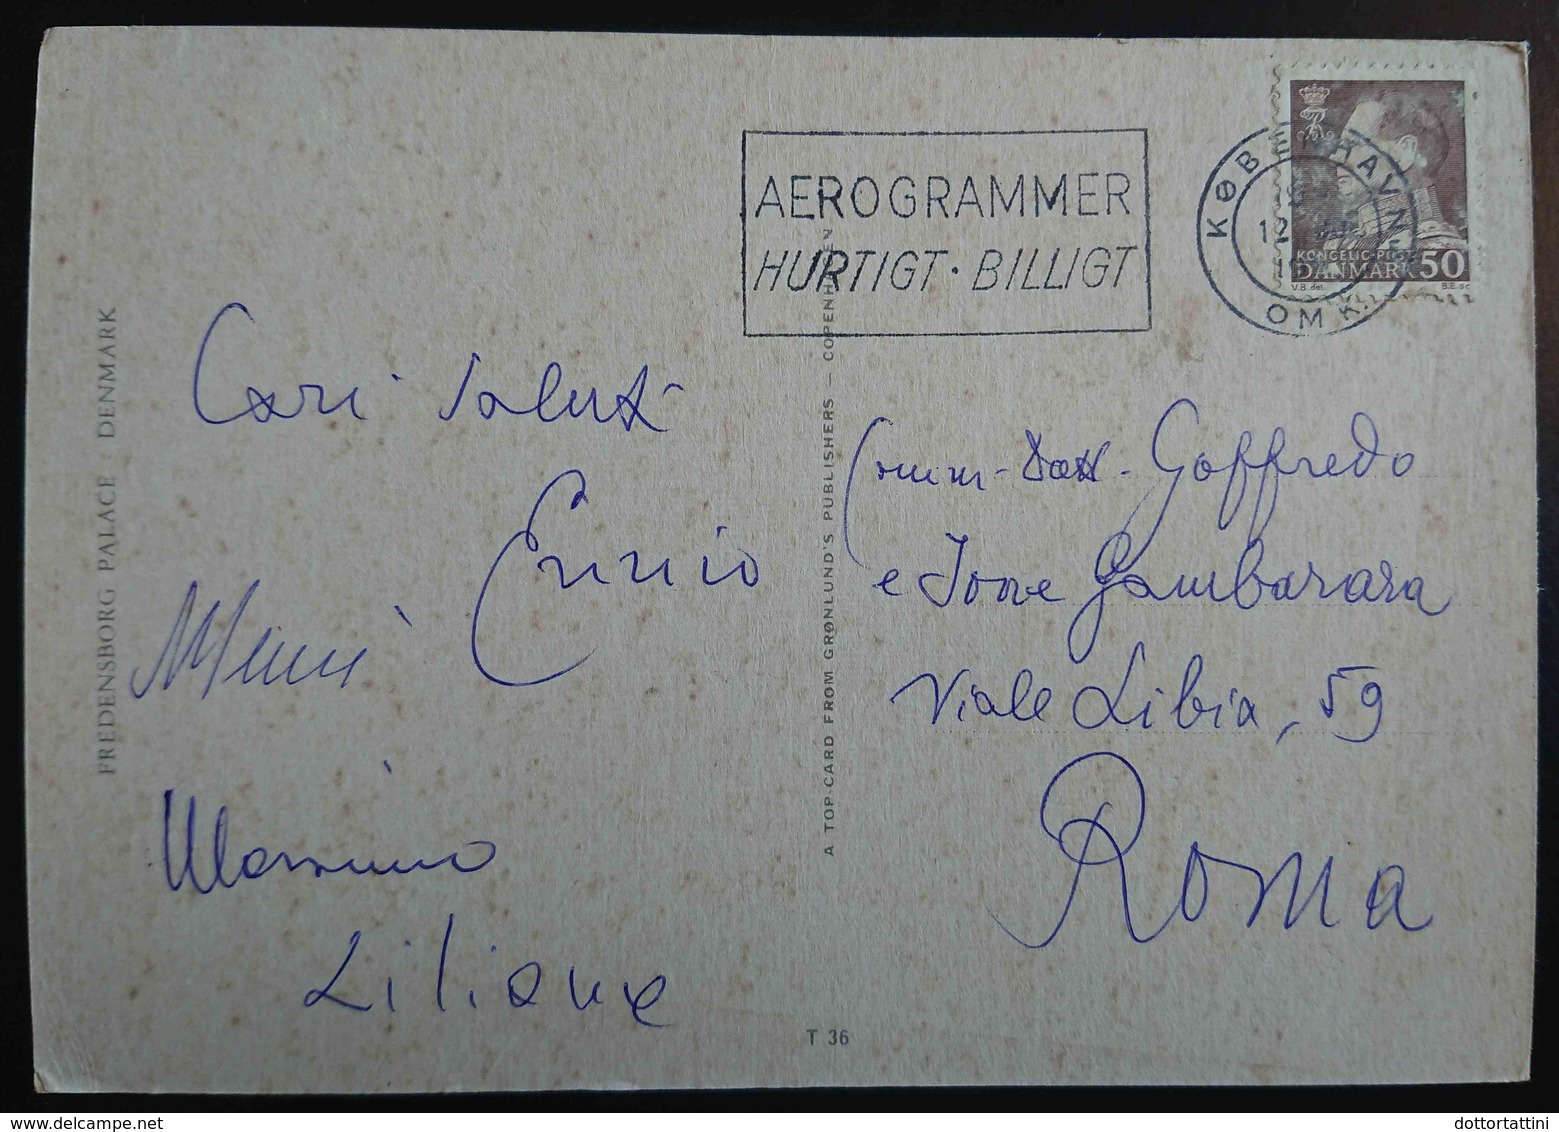 FREDENSBORG PALACE · DENMARK
Cari saluti
Ennio
Mimì
Massimo
Liliana
A TOP-CARD FROM GRØNLUND'S PUBLISHERS — COPENHAGEN
T 36
AEROGRAMMER
HURTIGT · BILLIGT
KØBENHAVN
12
OMK.
KONGELIG·POST
DANMARK 50
V.B. del.
B.E. sc
Comm- Dott- Goffredo
e Jone Gambarara
Viale Libia, 59
Roma
dottortattini